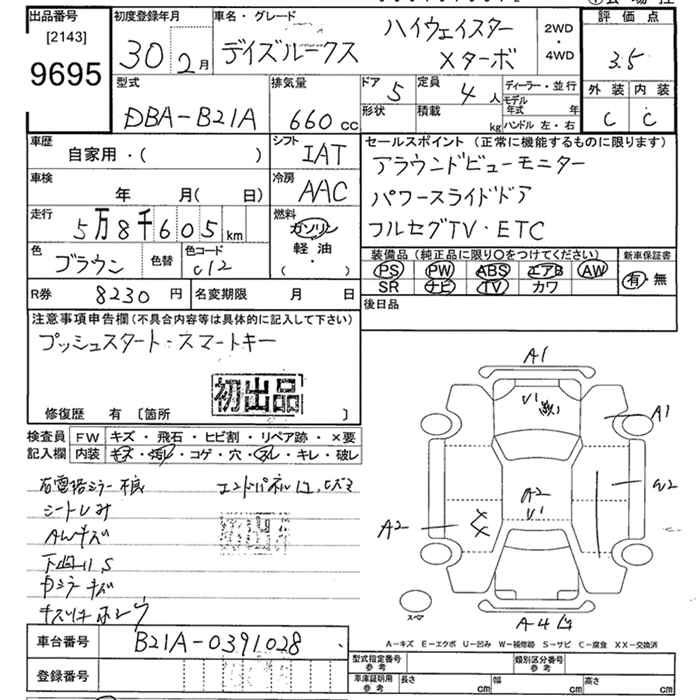 出品番号
[2143]
9695
初度登録年月
30 2月
車名・グレード
デイズルークス
ハイウェイスター
Xターボ
2WD
・
4WD
評価点
3.5
外装 内装
C C
型式
DBA-B21A
排気量
660 cc
ドア 5
形状
定員 4人
積載 kg
ディーラー・並行
モデル年式 年
ハンドル 左・右
車歴
自家用・( )
シフト
IAT
車検
年 月( 日)
冷房
AAC
走行
5万8千605km
燃料
ガソリン
軽油
( ・ )
色
ブラウン
色替
色コード
C12
R券 8230円
名変期限 月 日
セールスポイント(正常に機能するものに限ります)
アラウンドビューモニター
パワースライドドア
フルセグTV・ETC
装備品(純正品に限り○をつけてください)
PS PW ABS エアB AW
SR ナビ TV カワ
新車保証書
有・無
後日品
注意事項申告欄(不具合内容等は具体的に記入して下さい)
プッシュスタート・スマートキー
初出品
修復歴 有 [箇所 ]
検査員記入欄
FW キズ・飛石・ヒビ割・リペア跡・×要
内装 キズ・汚レ・コゲ・穴・スレ・キレ・破レ
シートしみ
AWキズ
初出品
A1
A1
U1
A2
U1
W2
A2
A4
スペア
A-キズ E-エクボ U-凹み W-補修跡 S-サビ C-腐食 XX-交換済
車台番号 B21A-0391028
登録番号
型式指定番号 参考
類別区分番号 参考
車庫証明用 参考
長さ cm
幅 cm
高さ cm